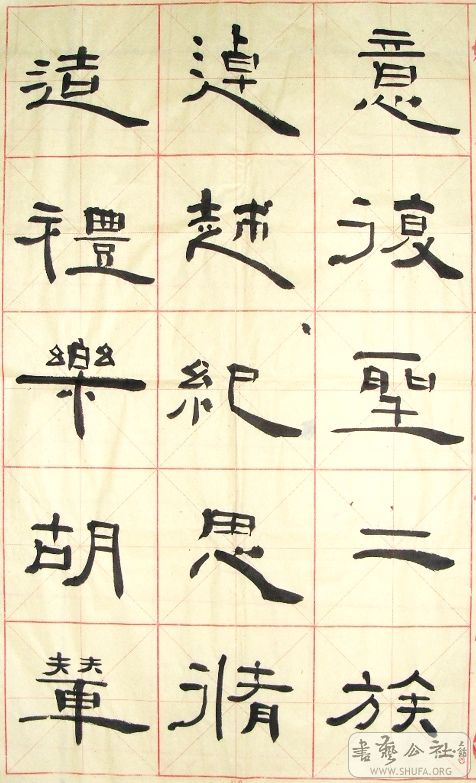 意復聖二族
逴越紀思脩
造禮樂胡輦
書藝公社
WWW.SHUFA.ORG